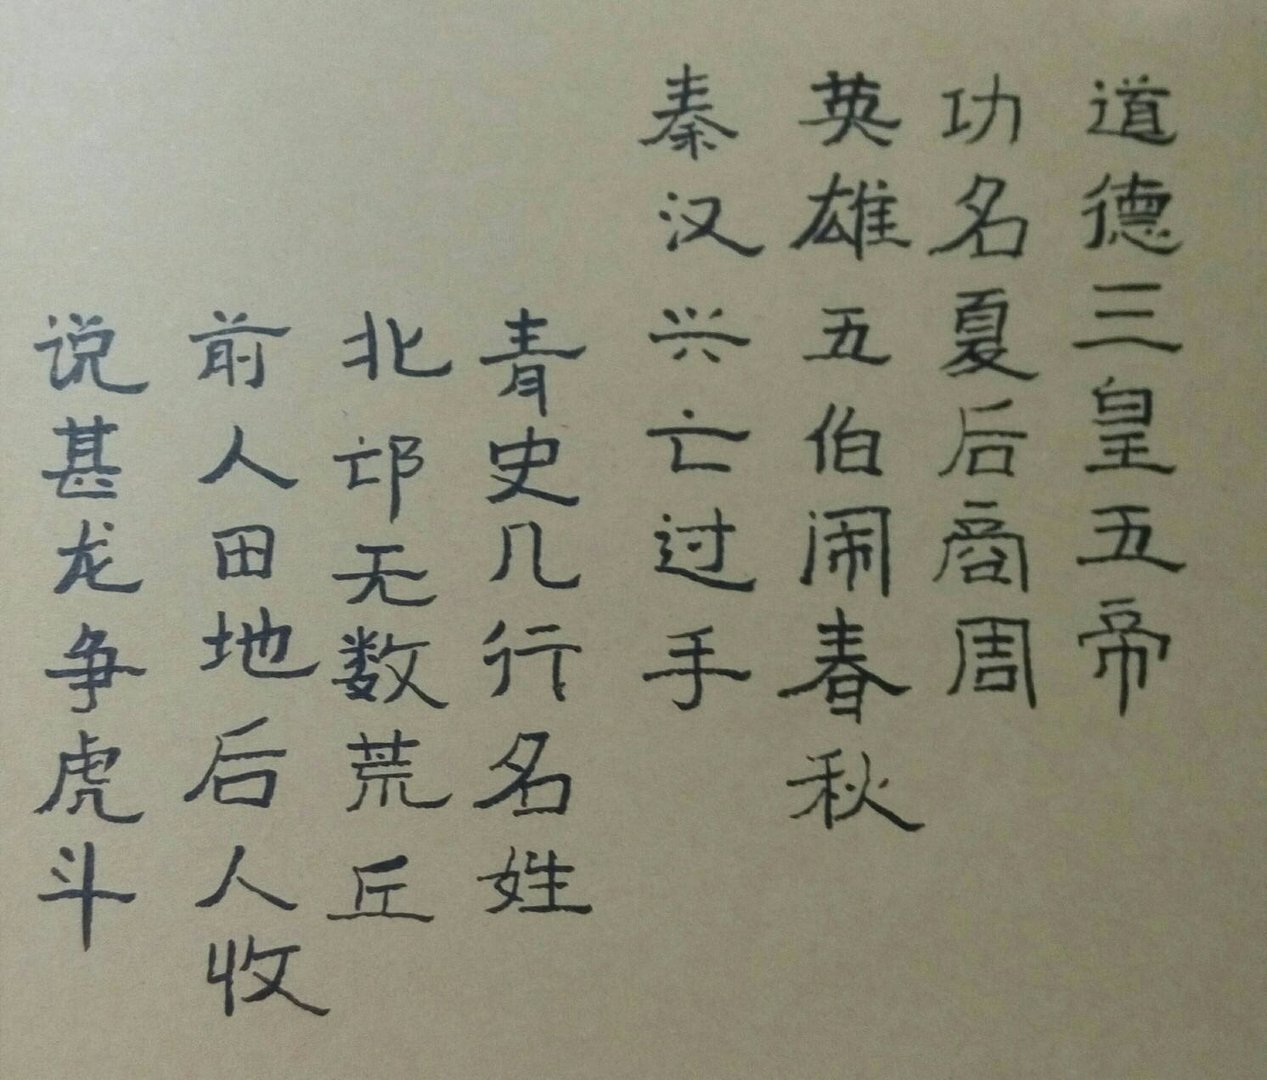 道德三皇五帝
功名夏后商周
英雄五伯闹春秋
秦汉兴亡过手
青史几行名姓
北邙无数荒丘
前人田地后人收
说甚龙争虎斗